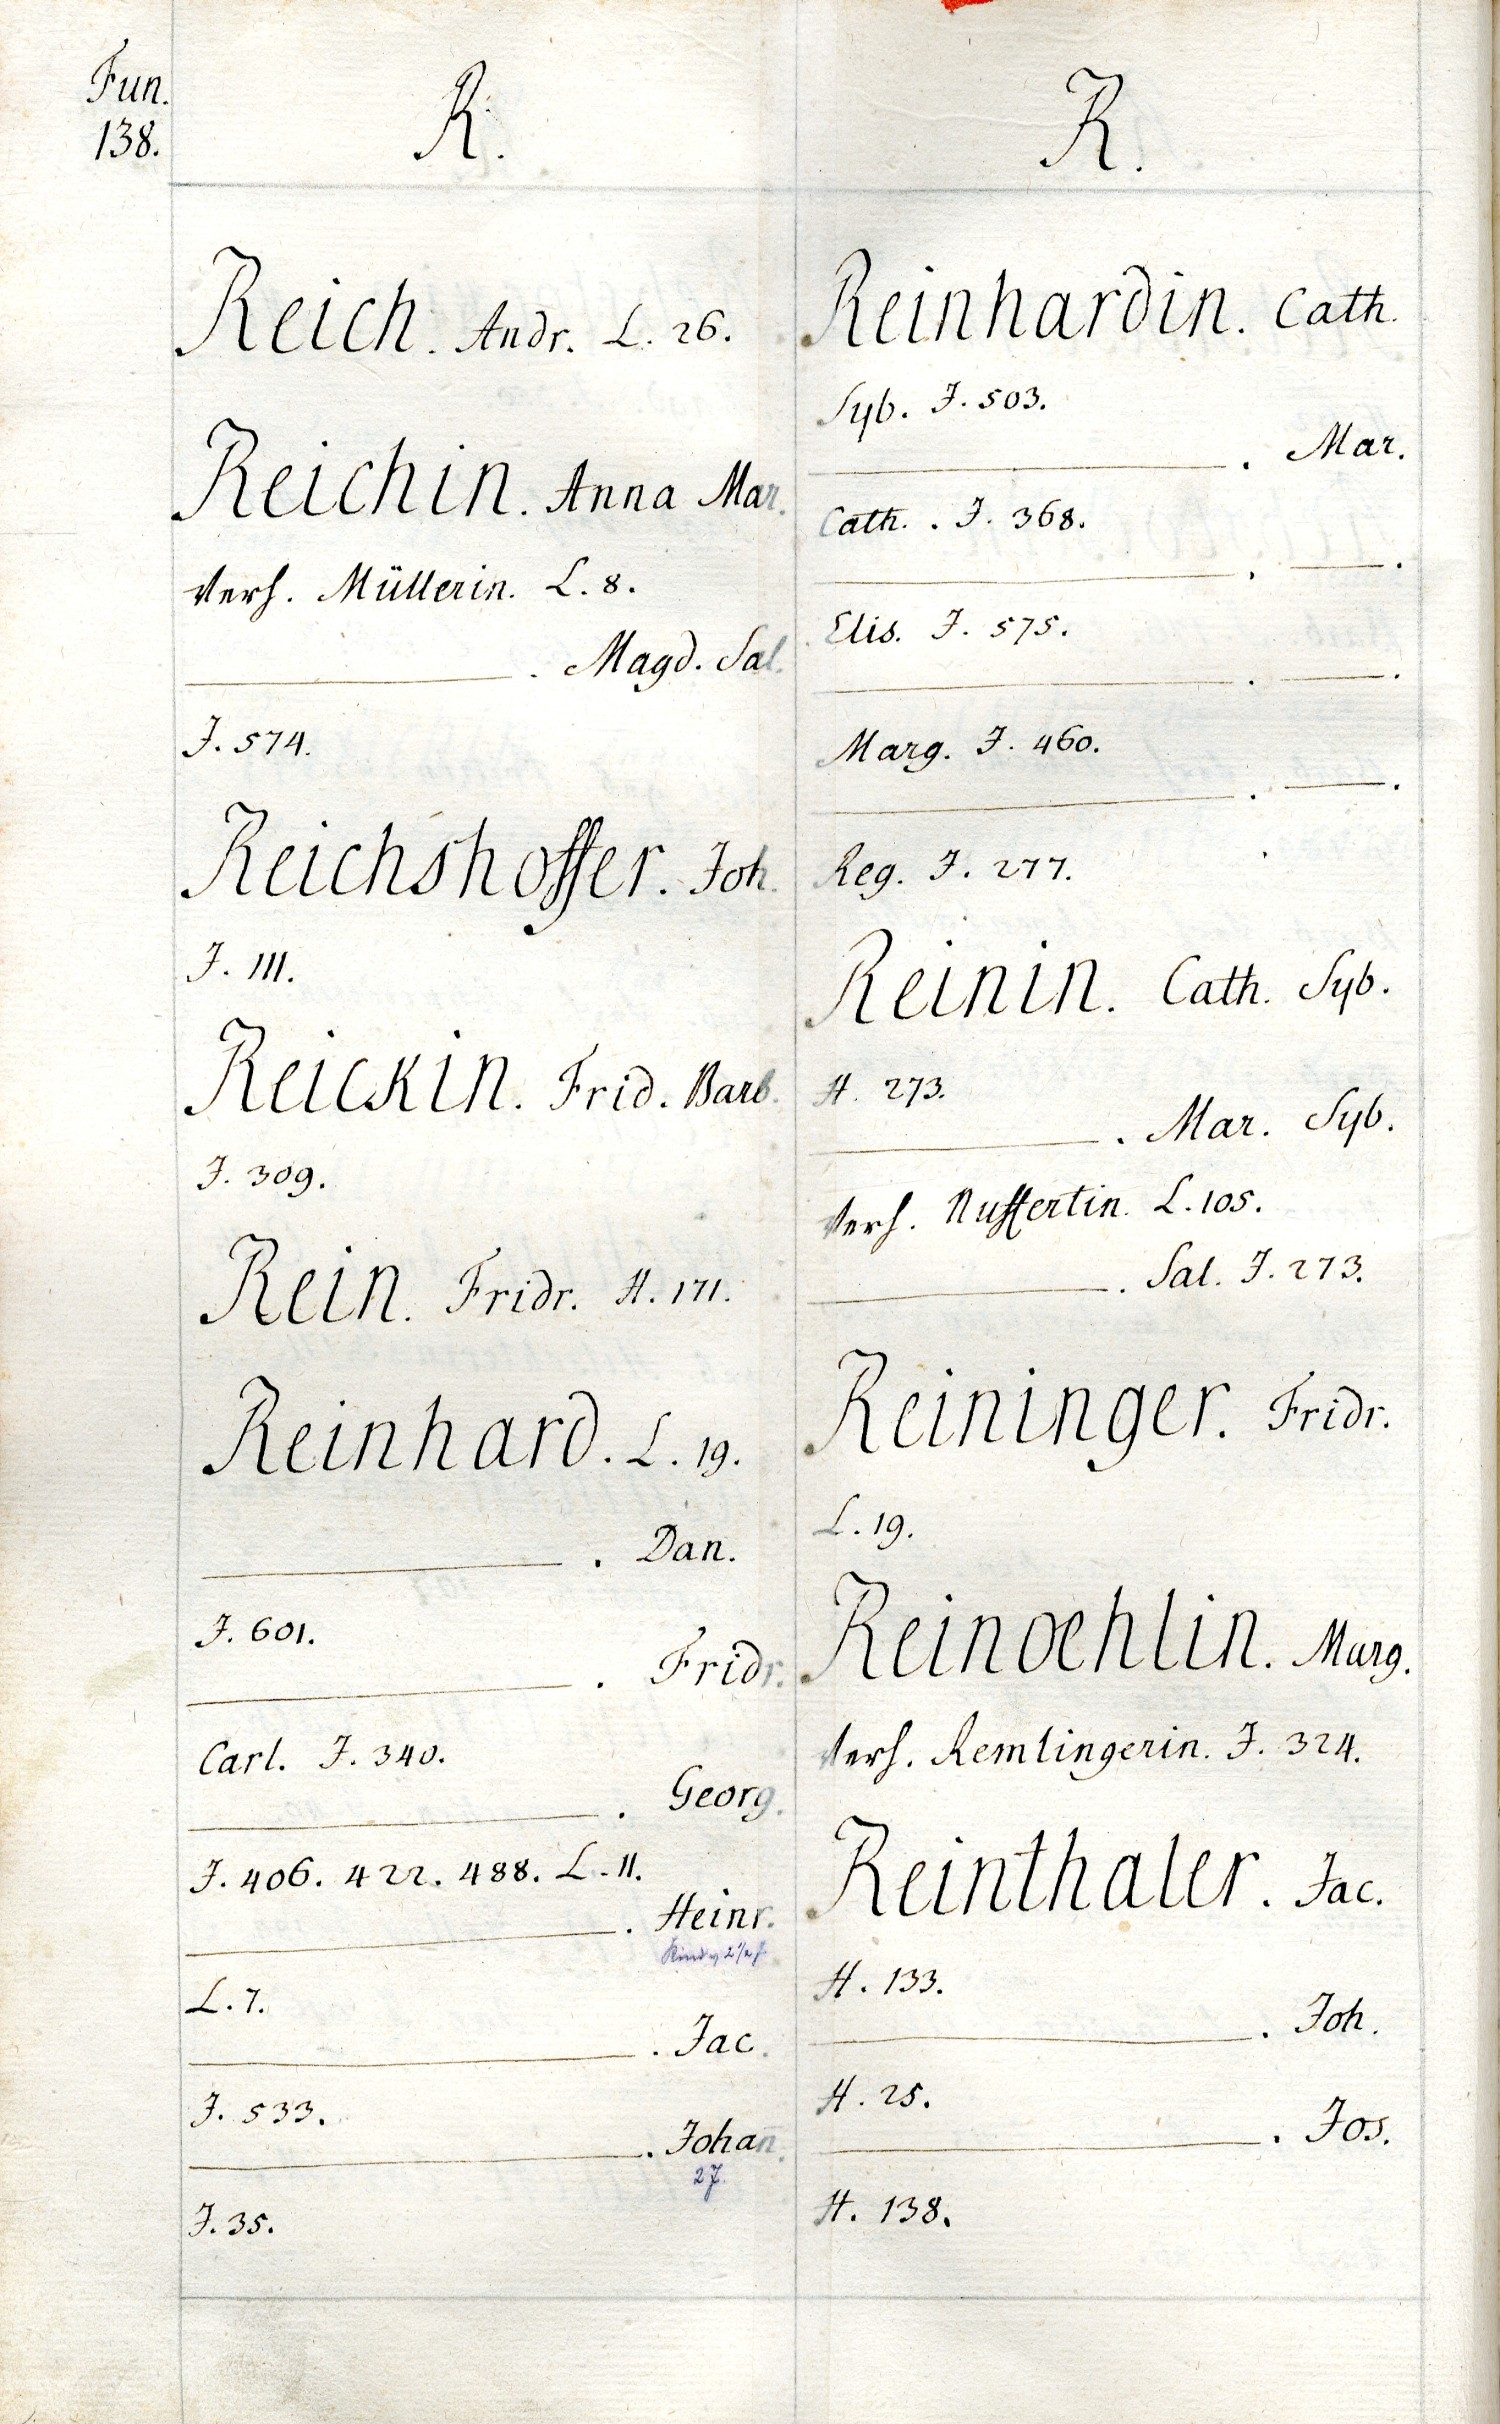 Fun.
138.
R.
Reich. Andr. L. 26.
Reichin. Anna Mar.
Verh. Müllerin. L. 8.
———. Magd. Sal.
J. 574.
Reichshoffer. Joh.
J. 111.
Reickin. Frid. Barb.
J. 309.
Rein. Fridr. H. 171.
Reinhard. L. 19.
———. Dan.
J. 601.
———. Fridr.
Carl. J. 340.
———. Georg.
J. 406. 422. 488. L. 11.
———. Heinr.
2 1/2 J
L. 7.
———. Jac.
J. 533.
———. Johan̄.
27.
J. 35.
R.
Reinhardin. Cath.
Syb. J. 503.
———. Mar.
Cath. . J. 368.
———. ———.
Elis. J. 575.
———. ———.
Marg. J. 460.
———. ———.
Reg. J. 277.
Reinin. Cath. Syb.
H. 273.
———. Mar. Syb.
Verh. Nuffertin. L. 105.
———. Sal. J. 273.
Reininger. Fridr.
L. 19.
Reinoehlin. Marg.
Verh. Remlingerin. J. 324.
Reinthaler. Jac.
H. 133.
———. Joh.
H. 25.
———. Jos.
H. 138.